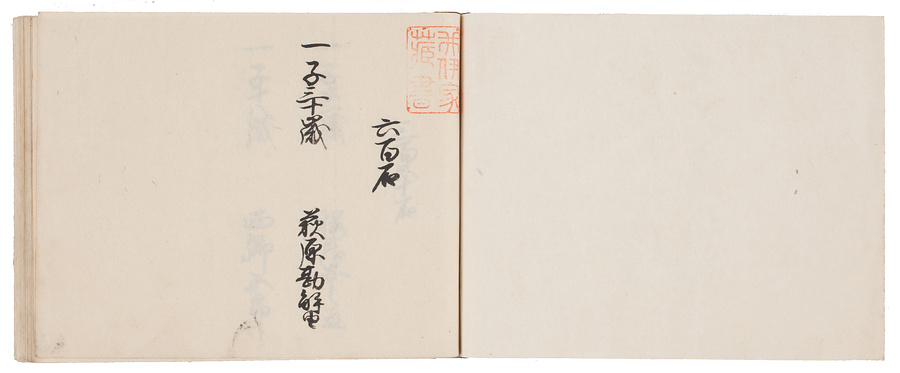 井伊家蔵書
六百石
一子三十歳 萩原勘解由